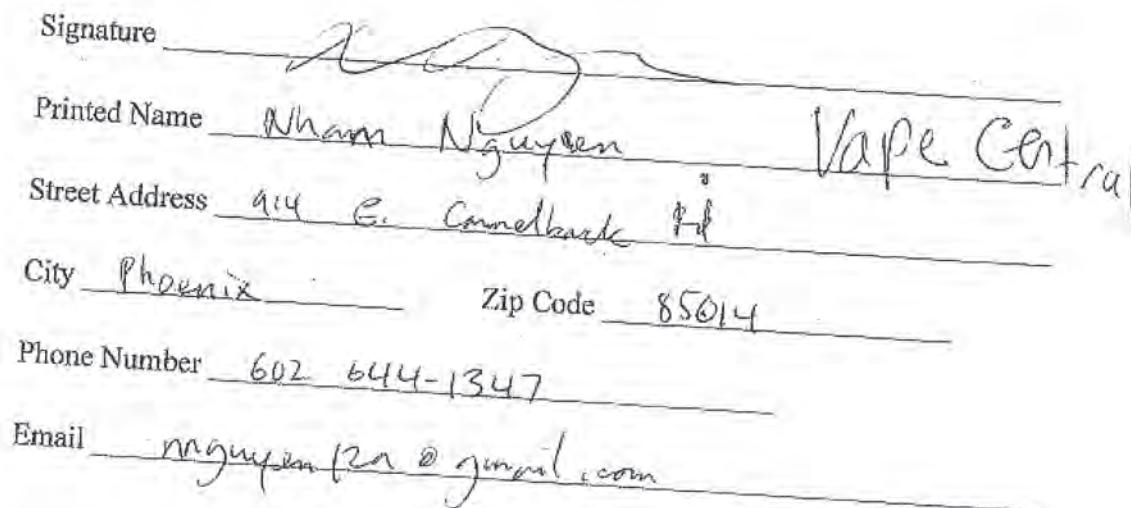 Signature
Printed Name Nham Nguyen Vape Central
Street Address 914 E. Camelback Rd
City Phoenix Zip Code 85014
Phone Number 602 644-1347
Email